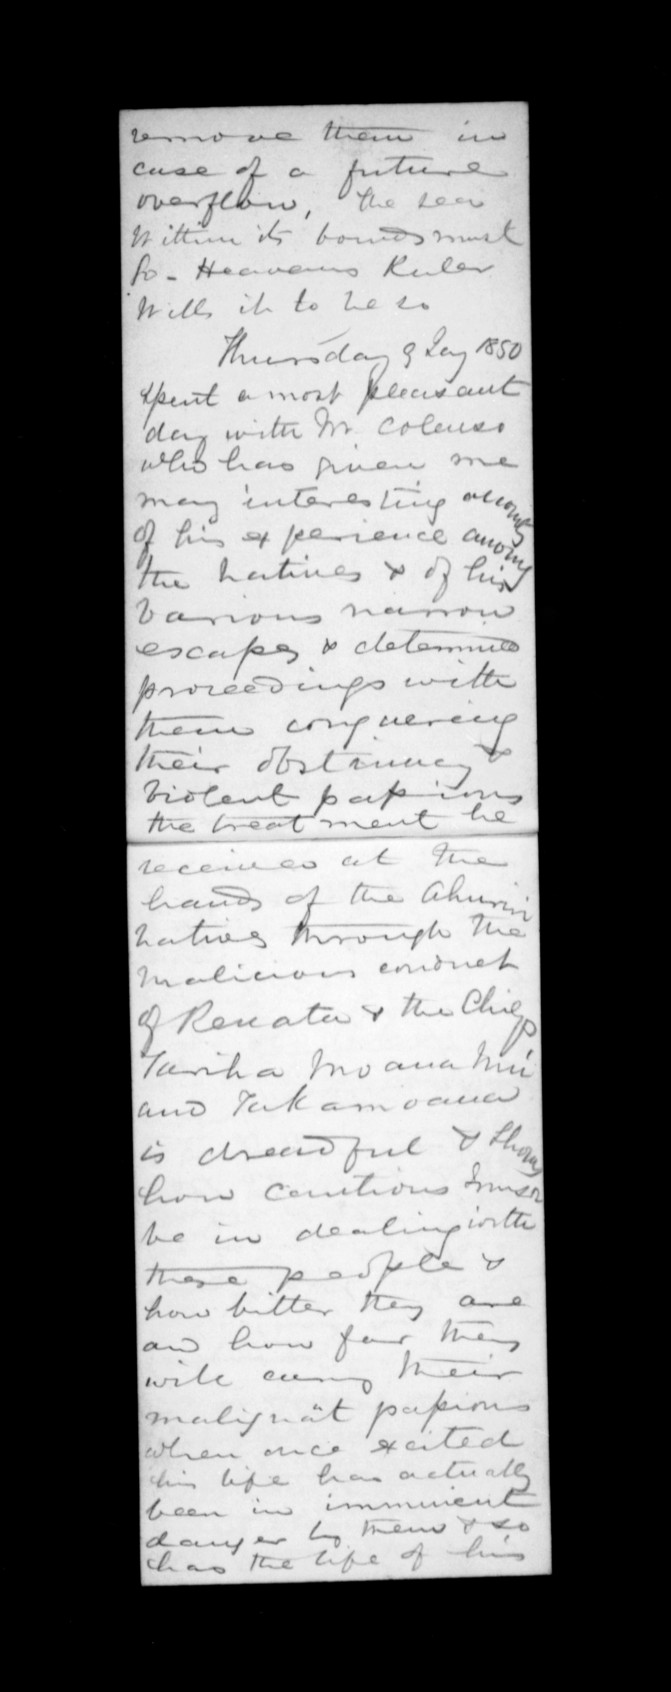 remove them in
case of a future
overflow, the sea
Within its bounds must
Go - Heavens Ruler
Wills it to be so
Thursday 9 Jay 1850
spent a most pleasant
day with Mr. Colenso
who has given me
many interesting accounts
of his experience among
the natives & of his
various narrow
escapes & determined
proceedings with
them conquering
their obstinacy &
violent passions
the treatment he
receives at the
hands of the Ahuriri
natives through the
malicious conduct
of Renata & the Chiefs
Tariha Moananui
and Takamoana
is dreadful & shows
how cautious I must
be in dealing with
these people &
how bitter they are
and how far they
will carry their
malignant passions
when once excited
his life has actually
been in imminent
danger by them & so
has the life of his